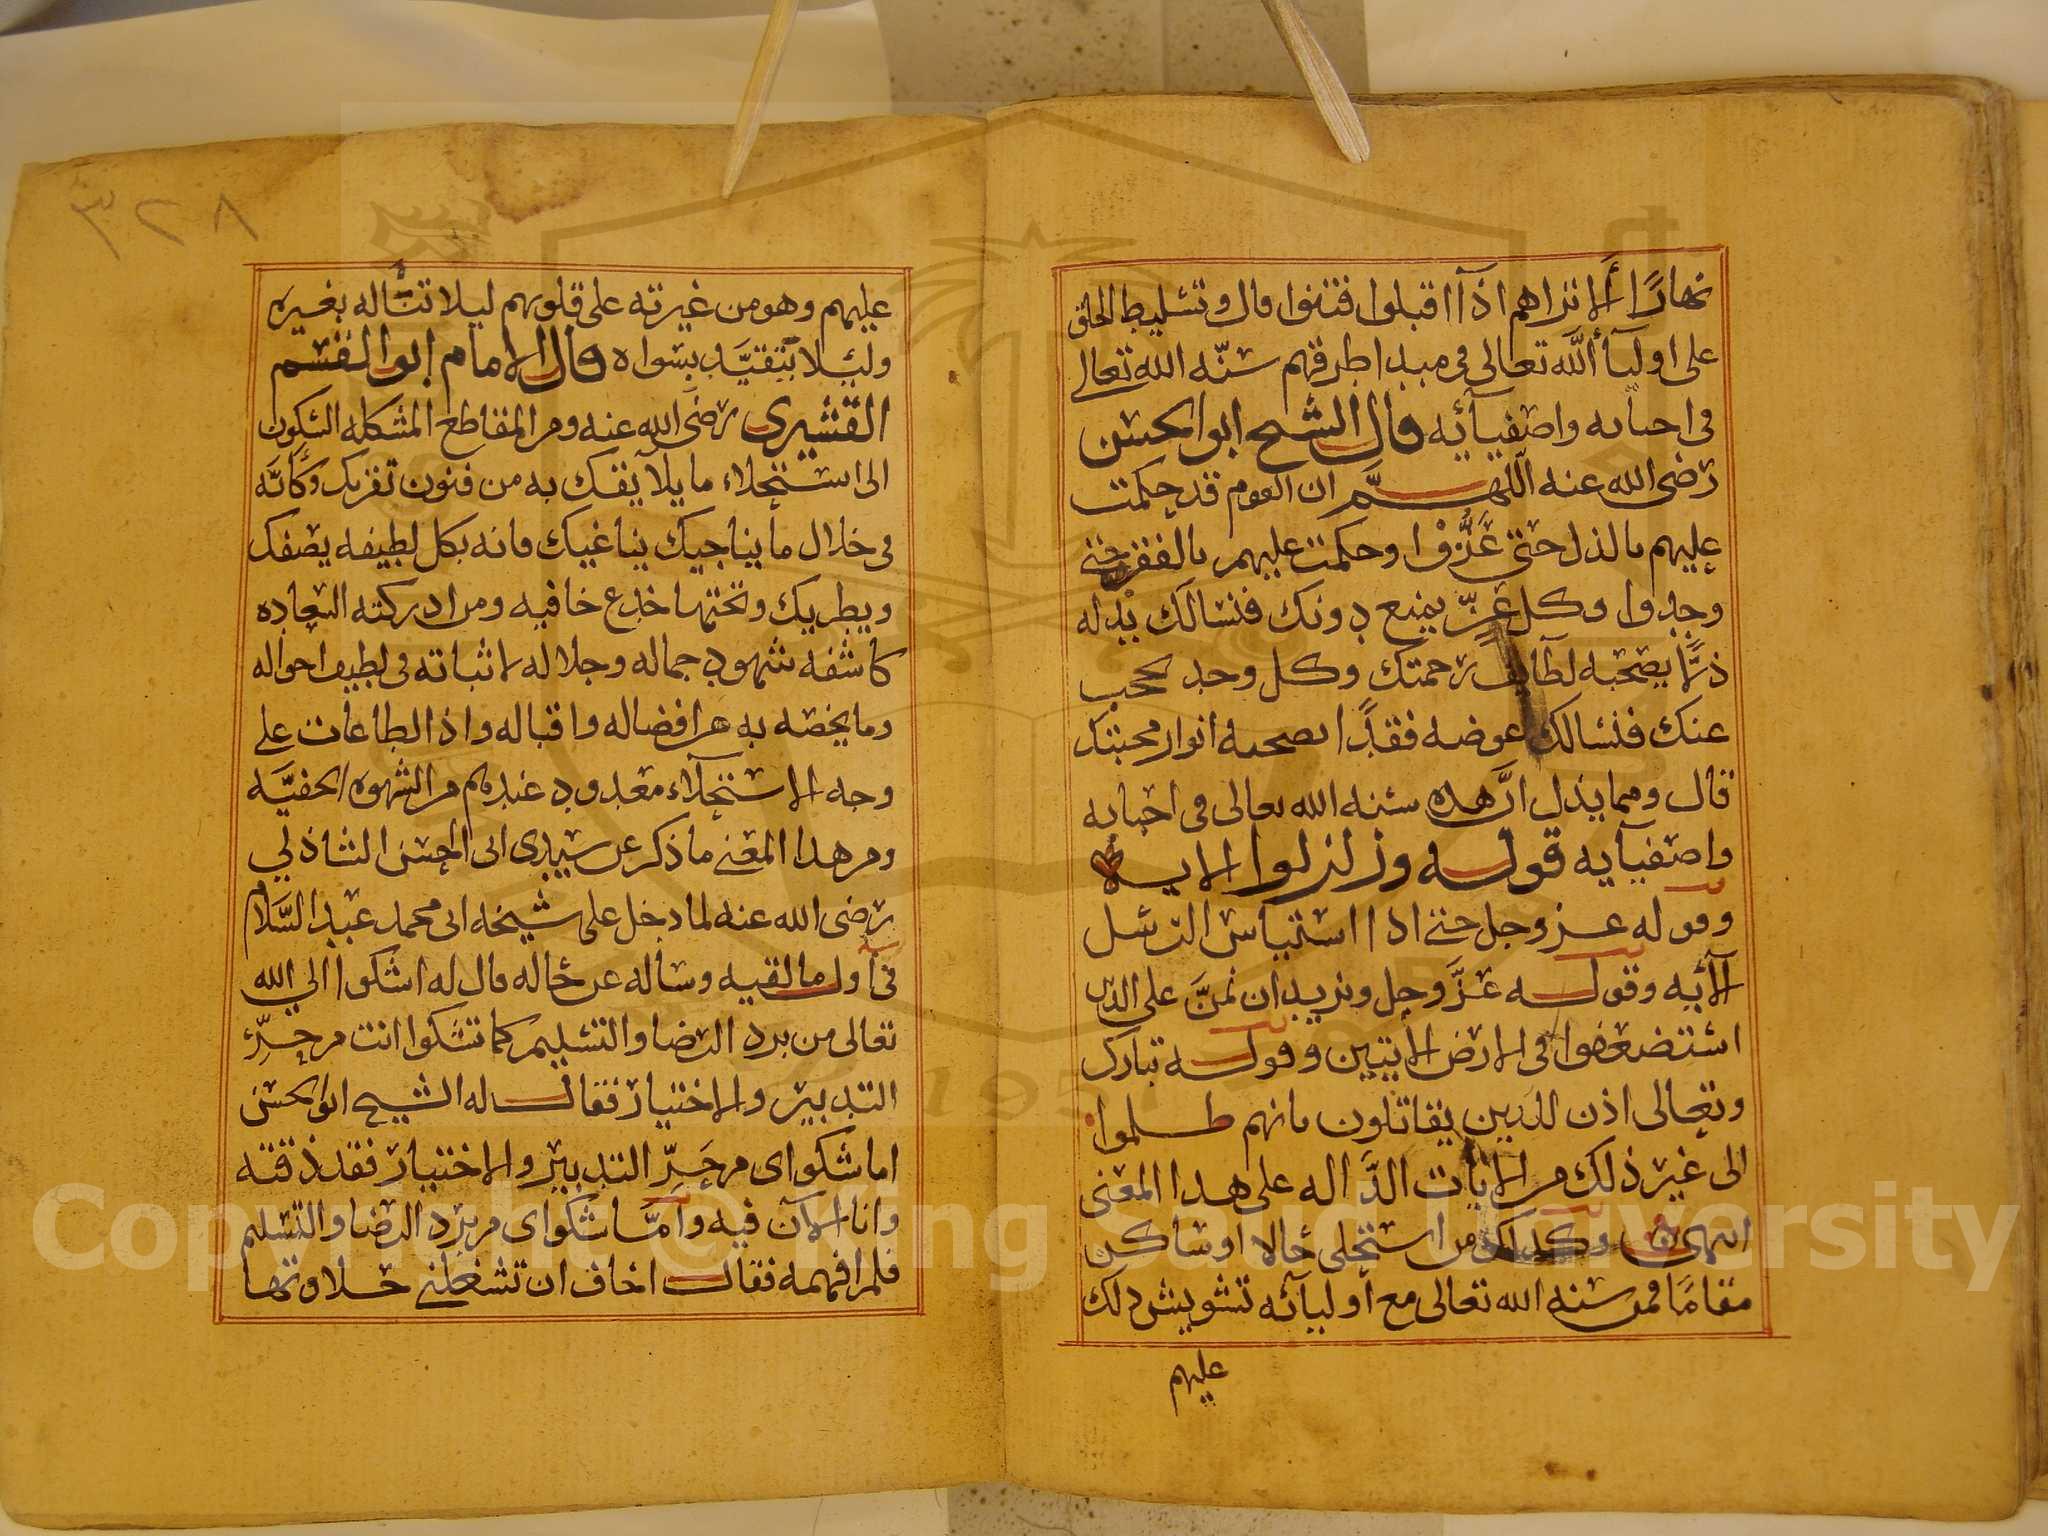 نهارًا ألا تراهم اذا اقبلوا فتنوا قال وتسليط الخلق
على اوليآ الله تعالى في مبدا طرقهم سنّه الله تعالى
في احبابه واصفيآئه قال الشيخ ابوالحسن
رضى الله عنه اللهم ان القوم قد حكمت
عليهم بالذل حتى عَزُّوْا وحكمت عليهم بالفقد حتى
وجدوا وكل عزٍّ يمنع دونك فنسالك بدله
ذلًّا يصحبه لطآيف رحمتك وكل وجد يحجب
عنك فنسالك عوضه فقدًا تصحبه انوار محبتك
قال ومما يدل انّ هذه سنه الله تعالى في احبابه
واصفيآيه قوله وزلزلوا الايه
وقوله عز وجل حتى اذا استياس الرسل
الآيه وقوله عزّ وجل ونريد ان نمنّ على الذين
استضعفوا في الارض الايتين وقوله تبارك
وتعالى اذن للذين يقاتلون بانهم ظلموا
الى غير ذلك من الايات الدّاله على هذا المعنى
انتهى وكذلك من استحلى حالا او ساكن
مقامًا فمن سنه الله تعالى مع أوليآئه تشويش ذلك
عليهم
٣٢٨
عليهم وهو من غيرته على قلوبهم ليلا تتألّه بغيره
وليلا تتقيّد بسواه قال الامام ابو القسم
القشيرى رضى الله عنه ومن المقاطع المشكله السكون
الى استحلاء ما يلاقيك به من فنون تقربك وكأنّه
في خلال ما يناجيك يناغيك فانه بكل لطيفه يصفك
ويطربك وتحتها خدع خافيه ومن ادركته السعاده
كاشفه شهود جماله وجلاله لا اثباته في لطيف احواله
وما يخصه به من افضاله واقباله واذ الطاعات على
وجه الاستحلآء معدود عندهم من الشهوه الخفيّه
ومن هذا المعنى ما ذكر عن سيدى ابى الحسن الشاذلي
رضى الله عنه لما دخل على شيخه ابى محمد عبد السّلام
في أول ما لقيه وساله عن حاله قال له اشكوا الي الله
تعالى من برد الرضا والتسليم كما تشكوا انت من حرّ
التدبير والاختيار فقال له الشيخ ابوالحسن
اما شكواى من حَرِّ التدبير والاختيار فقد ذقته
وانا الآن فيه وامّا شكواى من برد الرضا والتسليم
فلم افهمه فقال اخاف ان تشغلني حلاوتها
Copyright © King Saud University
1957